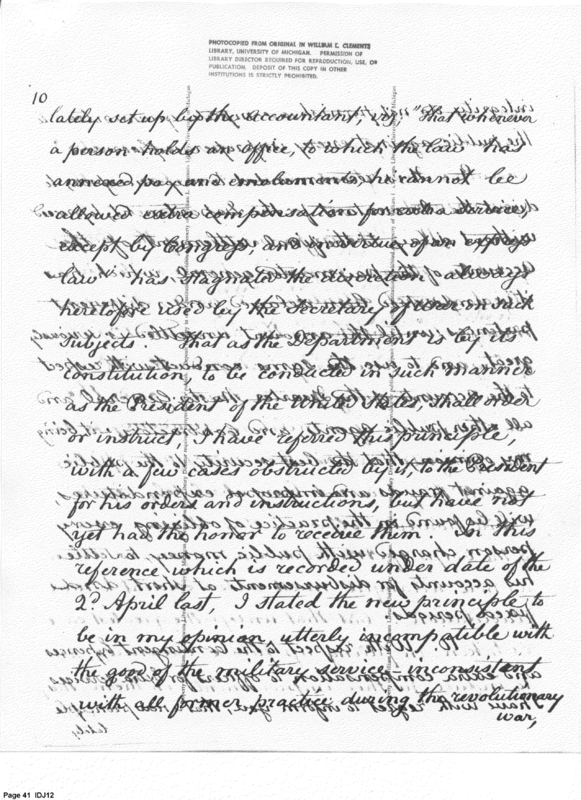 PHOTOCOPIED FROM ORIGINAL IN WILLIAM L. CLEMENTS
LIBRARY, UNIVERSITY OF MICHIGAN. PERMISSION OF
LIBRARY DIRECTOR REQUIRED FOR REPRODUCTION, USE, OR
PUBLICATION. DEPOSIT OF THIS COPY IN OTHER
INSTITUTIONS IS STRICTLY PROHIBITED.
10
lately set up by the accountant, viz, "That whenever
a person holds an office, to which the law has
annexed pay and emoluments, he cannot be
allowed extra compensation for extra service,
except by Congress, and in virtue of an express
law" has stagnated the discretion always
heretofore used by the Secretary of war on such
subjects. That as the Department is by its
constitution, to be conducted in such manner
as the President of the United States, shall order
or instruct, I have referred this principle,
with a few cases obstructed by it, to the President
for his orders and instructions, but have not
yet had the honor to receive them. In this
reference, which is recorded under date of the
2d April last, I stated the new principle to
be in my opinion utterly incompatible with
the good of the military service, inconsistent
with all former practice during the revolutionary
war,
Page 41 IDJ12